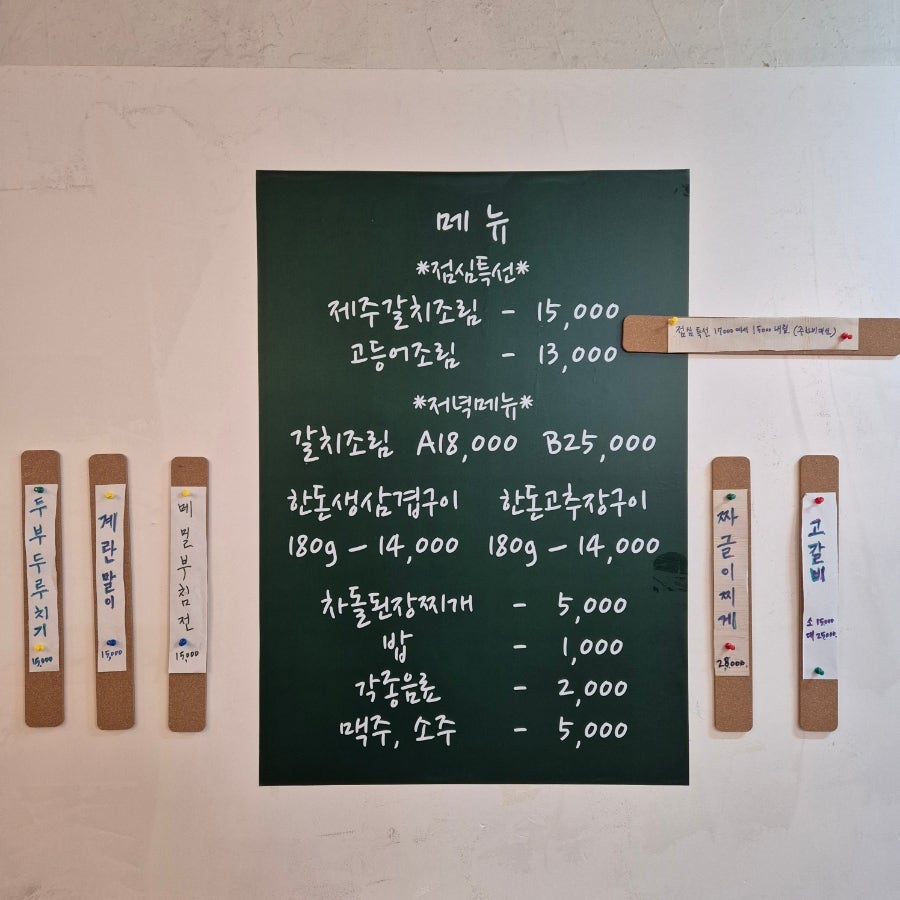 메뉴
*점심특선*
제주갈치조림 - 15,000
고등어조림 - 13,000
점심특선 17000에서 15000
*저녁메뉴*
갈치조림 A18,000 B25,000
한돈생삼겹구이 한돈고추장구이
180g - 14,000 180g - 14,000
차돌된장찌개 - 5,000
밥 - 1,000
각종음료 - 2,000
맥주, 소주 - 5,000
두부두루치기
15,000
계란말이
15,000
메밀부침전
15,000
짜글이찌게
28,000.
고갈비
소 15000
대 25000.